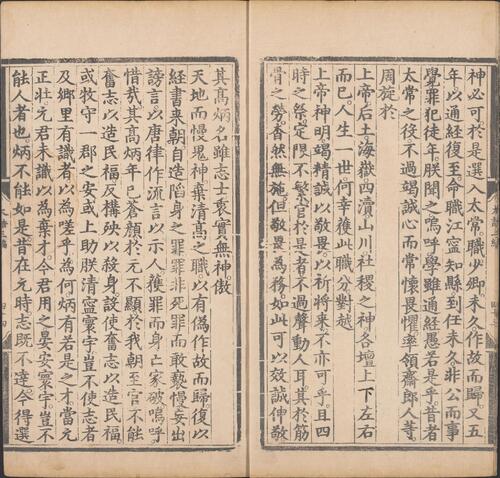 神必可於是選入太常職少卿未久作故而歸又五
年以通經復至命職江寧知縣到任未久非公而事
覺罪犯徒年朕聞之嗚呼學雖通經愚若是乎昔者
太常之役不過竭誠心而常懷畏懼率領齋郎人等
周旋於
上帝后土海嶽四瀆山川社稷之神各壇上下左右
而已人生一世何幸獲此職分對越
上帝神明竭精誠以敬畏以祈將來不亦可乎且四
時之祭定限不繁官於是者不過聲動人耳其於筋
骨之勞杳然無施但敬畏為務如此可以效誠伸敬
其高炳名雖志士衷實無神傲
天地而慢鬼神棄清高之職以有偽作故而歸復以
經書來朝自造陷身之罪罪非死罪而敢褻慢妄出
謗言以唐律作流言以示人獲罪而身亡家破嗚呼
惜哉其高炳年已蒼顏於元不顯於我朝至官不能
奮志以造民福反構殃以殺身設使奮志以造民福
或牧守一郡之安或上助朕清寧寰宇豈不使志者
及鄉里有識者以為嗟乎為何炳有若是之才當元
正壯元君未識以為棄才今君用之晏安寰宇豈不
能人者也炳不能如是昔在元時志既不達今得選